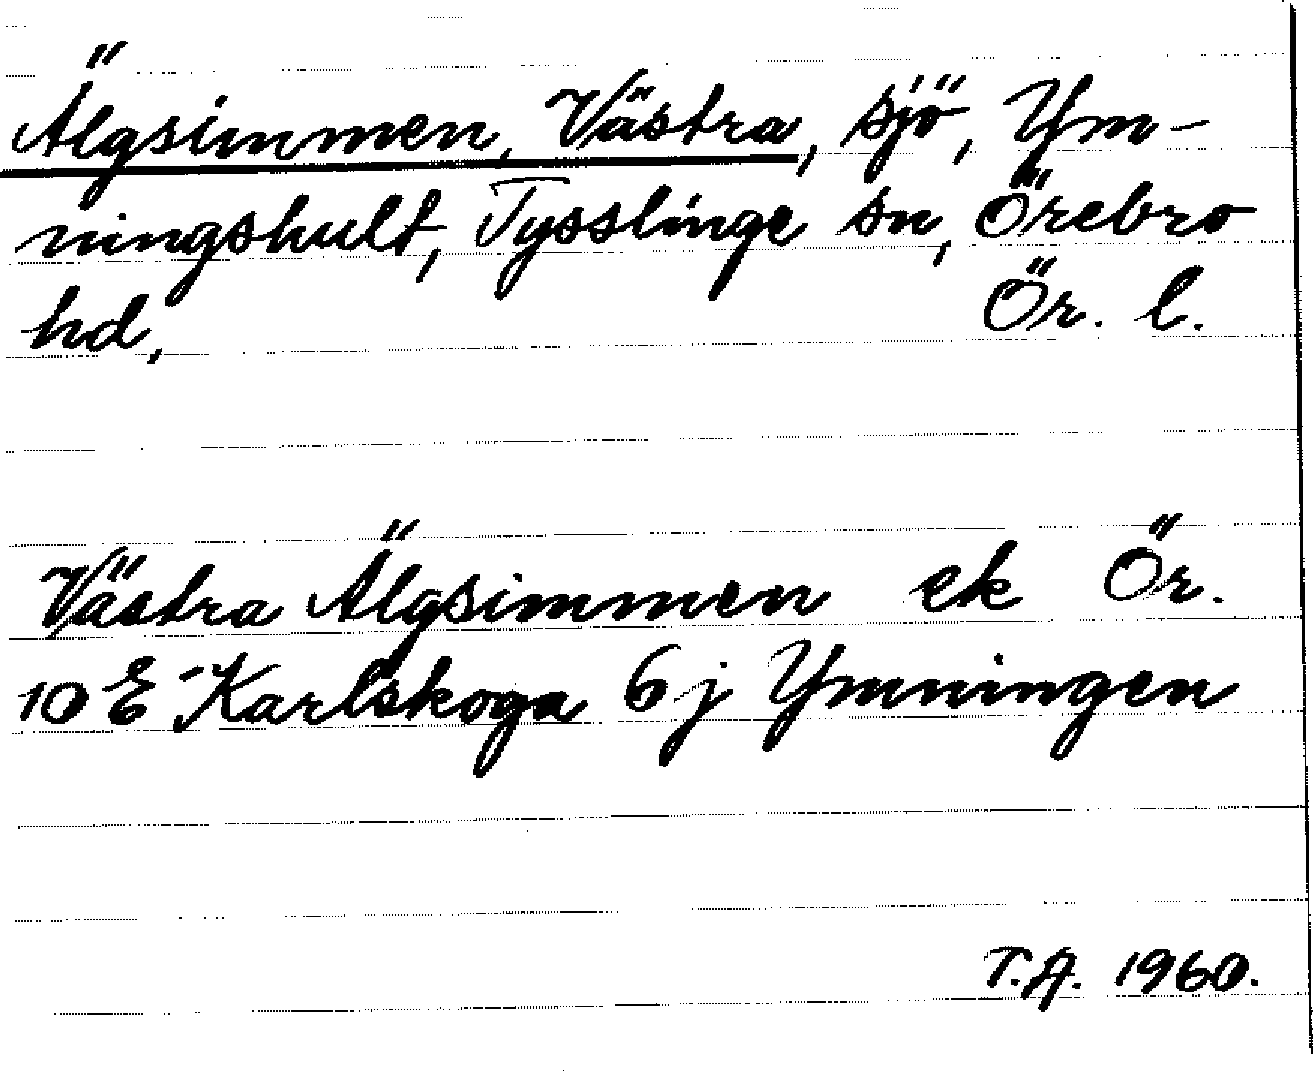 Älgsimmen, Västra, sjö, Ym-
ningshult, Tysslinge sn, Örebro
hd, Ör. l.
Västra Älgsimmen ek Ör.
10 E Karlskoga 6 j Ymningen
T.A. 1960.